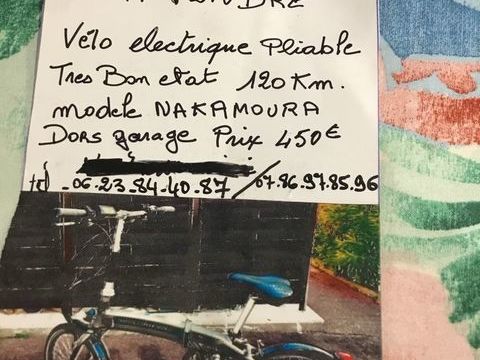 A VENDRE
Vélo electrique Pliable
Tres Bon etat 120Km.
modele NAKAMOURA
Dors garage Prix 450€
tel - 06.23.84.40.87 / 07.86.97.85.96